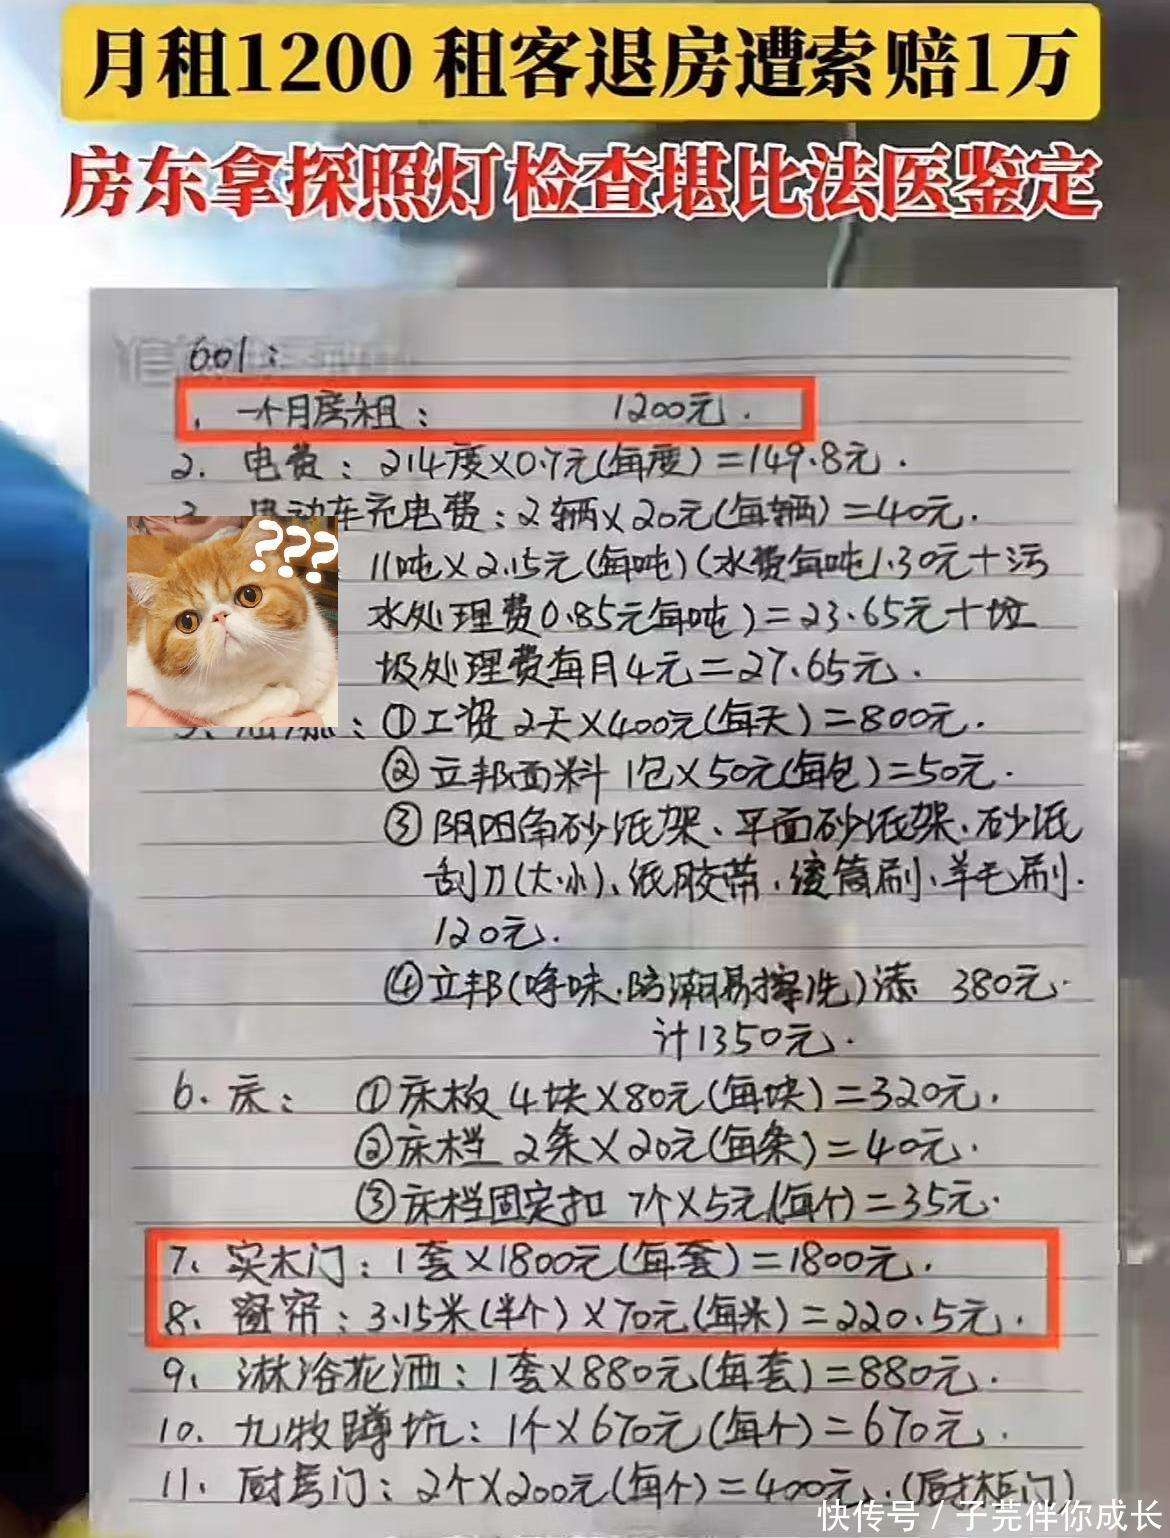 月租1200 租客退房遭索赔1万
房东拿探照灯检查堪比法医鉴定
601:
1、一个月房租: 1200元.
2. 电费: 214度×0.7元(每度)=149.8元.
电动车充电费:2辆×20元(每辆)=40元.
???
11吨×2.15元(每吨)(水费每吨1.30元+污
水处理费0.85元每吨)=23.65元+垃
圾处理费每月4元=27.65元.
:①工资 2天×400元(每天)=800元.
②立邦面料 1包×50元(每包)=50元.
③阴阳角砂纸架、平面砂纸架、砂纸
刮刀(大小)、纸胶带、滚筒刷、羊毛刷.
120元.
④立邦(净味.防潮易擦洗)漆 380元.
计1350元.
6、床: ①床板 4块×80元(每块)=320元.
②床档 2条×20元(每条)=40元.
③床档固定扣 7个×5元(每个)=35元.
7、实木门:1套×1800元(每套)=1800元.
8、窗帘:3.15米(半个)×70元(每米)=220.5元.
9、淋浴花洒:1套×880元(每套)=880元.
10、九牧蹲坑:1个×670元(每个)=670元.
11、厨房门:2个×200元(每个)=400元.(厨柜门)
快传号/子芫伴你成长